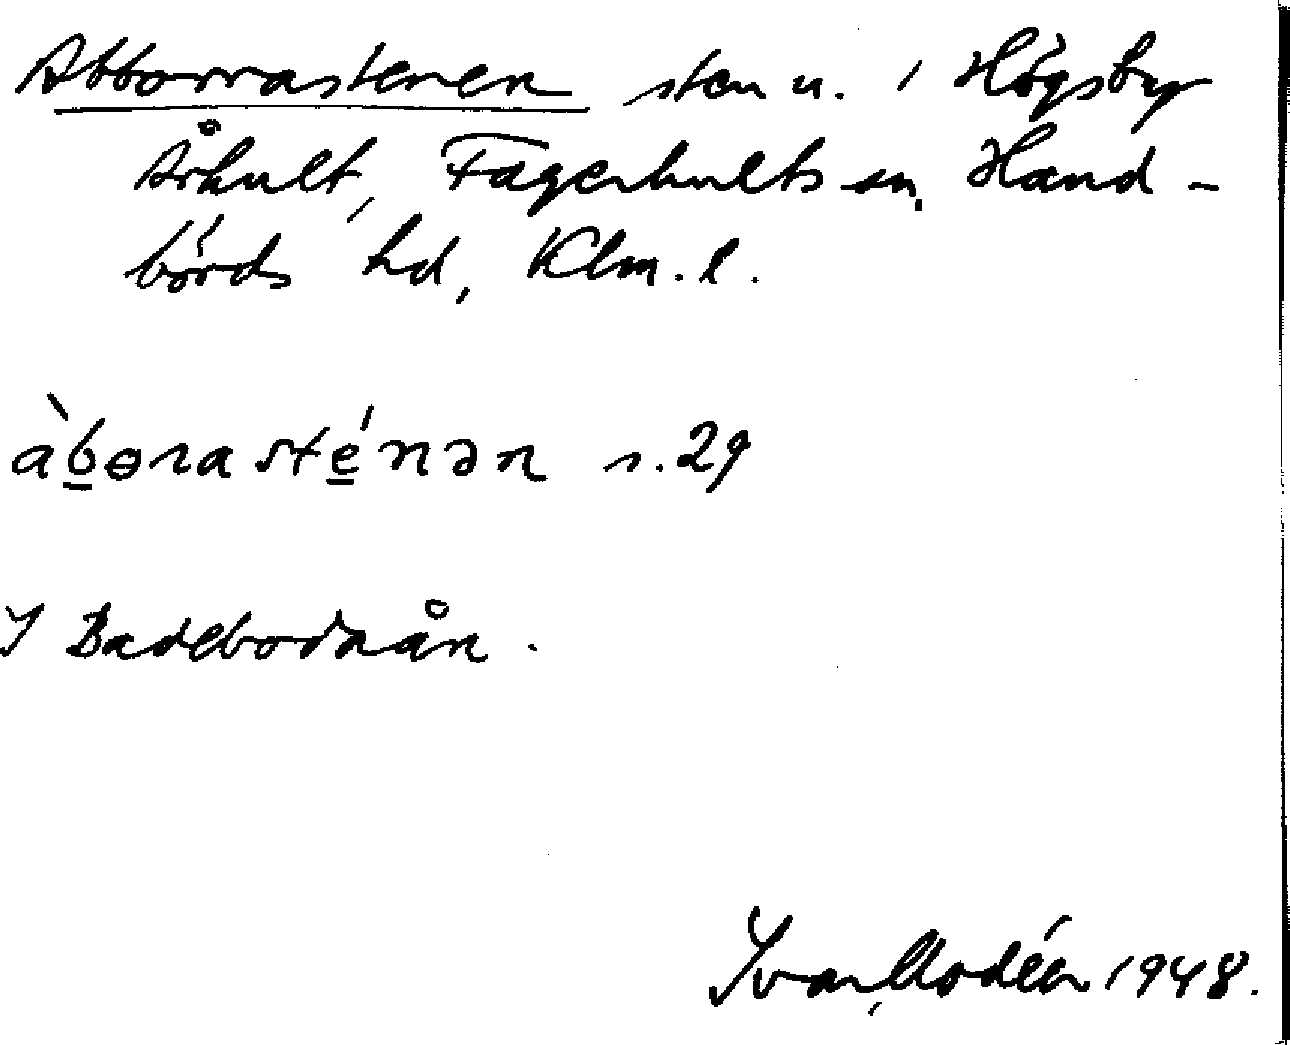 Abborrastenen sten u. i Högsby
Århult, Fagerhults sn, Hand-
börds hd, Klm. l.
àb̲ɵrasté̲nən s. 29
I Badebodaån.
Ivar Modéer 1948.